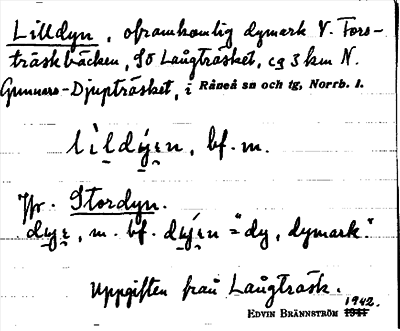 Lilldyn, oframkomlig dymark V. Fors-
träskbäcken, SO Långträsket, c:a 3 km N.
Gunnars-Djupträsket, i Råneå sn och tg, Norrb. l.
bf. m.
Jfr. Stordyn.
m. bf. = "dy, dymark."
Uppgiften från Långträsk.
1942.
EDVIN BRÄNNSTRÖM 1941